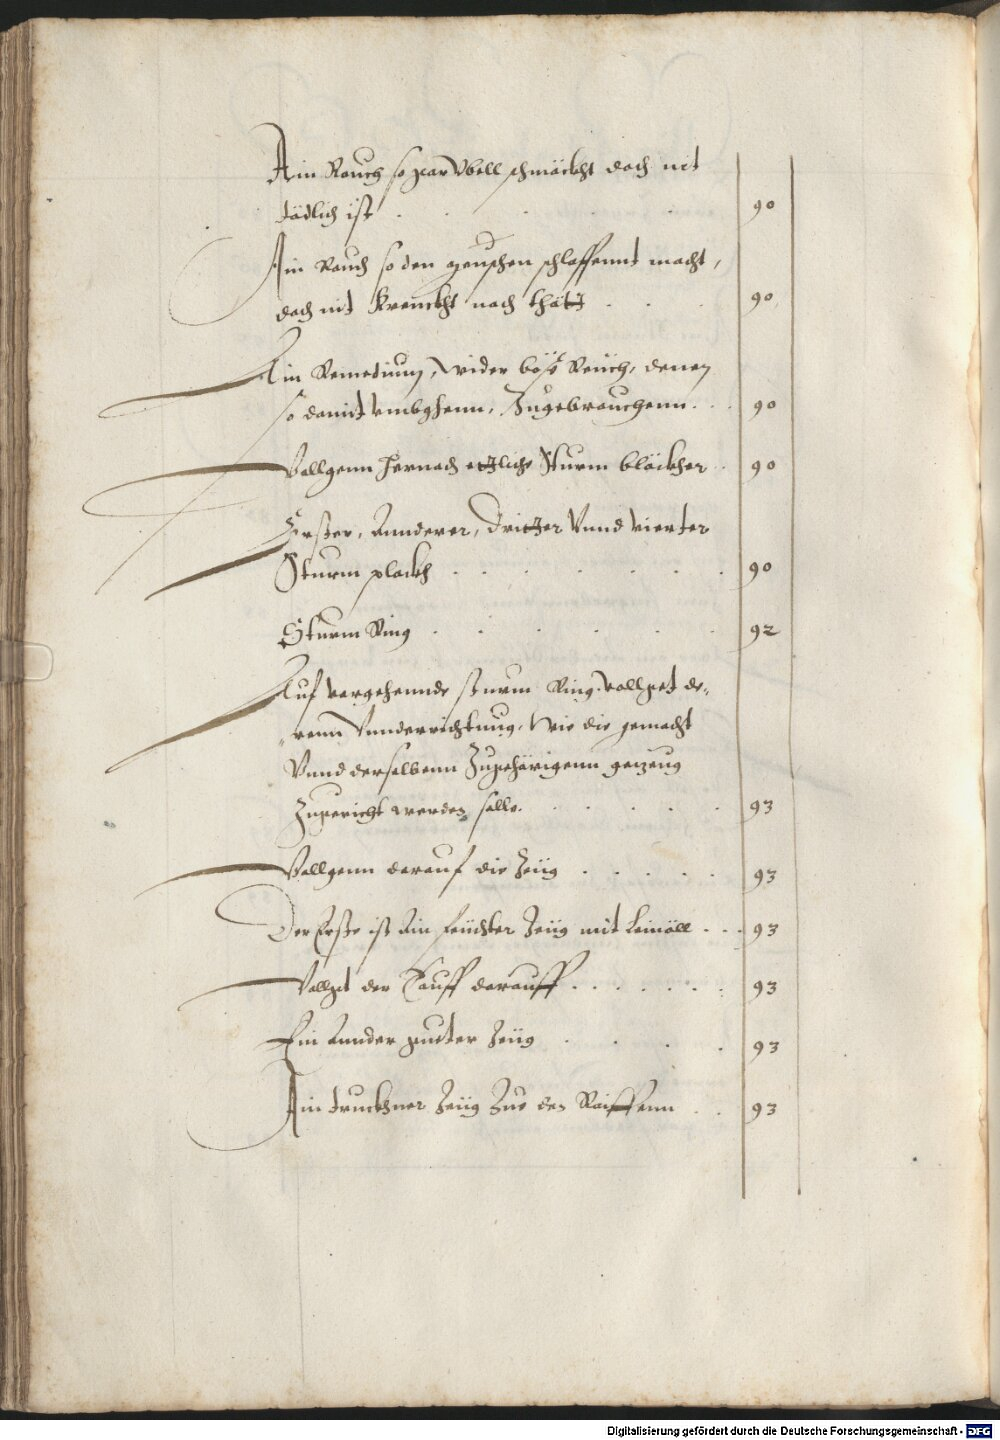 Ain Rauch so gar Vbell schmäckht doch nit
tödlich ist . . . . . 90
Ain Rauch so den menschen schlaffennt macht,
doch nit krenckht noch 90
Ain Remedium, wider böse Reüch, denen
so damit vmbgehenn, Zugebrauchenn . . 90
Vollgenn hernach etzliche Sturm blöckher . . 90
Erster, Annderer, dritzer Vnnd vierter
Sturm plockh . . . . . . 90
Sturm Ring . . . . . . 92
Auf vorgehennde sturm Ring, vollget de„
„renn Vnnderrichtung, Wie die gemacht
Vnnd derselbenn Zugehörigenn gezeug
Zugericht werden solle. . . . . 93
Vollgenn darauf die Zeüg . . . . . 93
Der Erste ist Ain feüchter Zeüg mit Leinöll . . . 93
Vollgt der Tauff darauff . . . . . . . 93
Ein Annder gueter Zeüg . . . . 93
Ain truckhner Zeüg Zue den Raiffenn . . 93
Digitalisierung gefördert durch die Deutsche Forschungsgemeinschaft - DFG